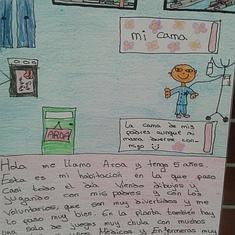 mi cama
La cama de mis
padres aunque mi
mama duerme con-
migo
AROA
Hola me llamo Aroa y tengo 5 años.
Esta es mi habitación en la que paso
Casi todo el día viendo dibujos y
jugando con mis padres y con los
voluntarios, que son muy divertidos y me
lo paso muy bien. En la planta también hay
una sala de juegos muy chula con muchos
Médicos y Enfermeras muy